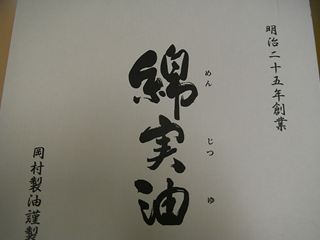 明治二十五年創業
綿実油
めんじつゆ
岡村製油謹製